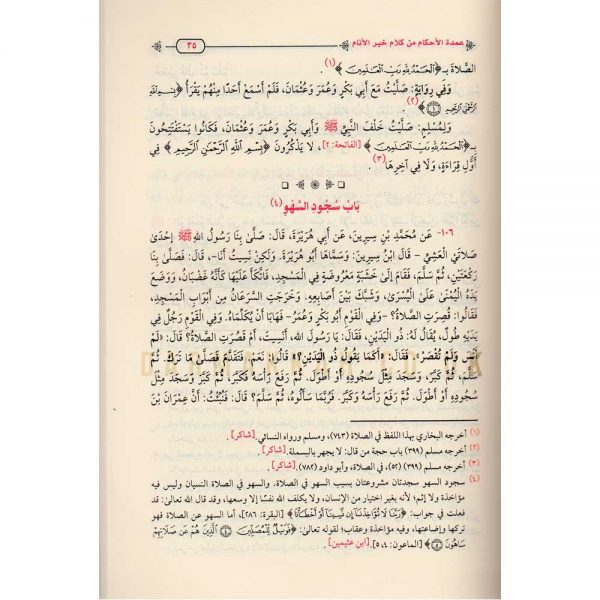 عمدة الأحكام من كلام خير الأنام
٣٥
الصَّلاةَ بـ﴿الْحَمْدُ لِلَّهِ رَبِّ الْعَالَمِينَ﴾(١).
وَفِي رِوَايَةٍ: صَلَّيْتُ مَعَ أَبِي بَكْرٍ وَعُمَرَ وَعُثْمَانَ، فَلَمْ أَسْمَعْ أَحَدًا مِنْهُمْ يَقْرَأُ ﴿بِسْمِ اللَّهِ
الرَّحْمَٰنِ الرَّحِيمِ ۝﴾(٢).
وَلِمُسْلِمٍ: صَلَّيْتُ خَلْفَ النَّبِيِّ ﷺ وَأَبِي بَكْرٍ وَعُمَرَ وَعُثْمَانَ، فَكَانُوا يَسْتَفْتِحُونَ
بِـ﴿الْحَمْدُ لِلَّهِ رَبِّ الْعَالَمِينَ﴾ [الفاتحة: ٢]، لَا يَذْكُرُونَ ﴿بِسْمِ اللَّهِ الرَّحْمَنِ الرَّحِيمِ﴾ فِي
أَوَّلِ قِرَاءَةٍ، وَلَا فِي آخِرِهَا(٣).
بَابُ سُجُودِ السَّهْوِ(٤)
١٠٦- عَنْ مُحَمَّدِ بْنِ سِيرِينَ، عَنْ أَبِي هُرَيْرَةَ، قَالَ: صَلَّى بِنَا رَسُولُ اللهِ ﷺ إِحْدَى
صَلَاتَيِ الْعَشِيِّ - قَالَ ابْنُ سِيرِينَ: وَسَمَّاهَا أَبُو هُرَيْرَةَ. وَلَكِنْ نَسِيتُ أَنَا-، قَالَ: فَصَلَّى بِنَا
رَكْعَتَيْنِ، ثُمَّ سَلَّمَ، فَقَامَ إِلَى خَشَبَةٍ مَعْرُوضَةٍ فِي الْمَسْجِدِ، فَاتَّكَأَ عَلَيْهَا كَأَنَّهُ غَضْبَانُ، وَوَضَعَ
يَدَهُ الْيُمْنَى عَلَى الْيُسْرَى، وَشَبَّكَ بَيْنَ أَصَابِعِهِ. وَخَرَجَتِ السَّرَعَانُ مِنْ أَبْوَابِ الْمَسْجِدِ،
فَقَالُوا: قُصِرَتِ الصَّلَاةُ؟ -وَفِي الْقَوْمِ أَبُو بَكْرٍ وَعُمَرُ- فَهَابَا أَنْ يُكَلِّمَاهُ. وَفِي الْقَوْمِ رَجُلٌ فِي
يَدَيْهِ طُولٌ، يُقَالُ لَهُ: ذُو الْيَدَيْنِ، فَقَالَ: يَا رَسُولَ اللهِ، أَنَسِيتَ، أَمْ قَصُرَتِ الصَّلَاةُ؟ قَالَ: «لَمْ
أَنْسَ وَلَمْ تُقْصَرْ»، فَقَالَ: «أَكَمَا يَقُولُ ذُو الْيَدَيْنِ؟» قَالُوا: نَعَمْ، فَتَقَدَّمَ فَصَلَّى مَا تَرَكَ ثُمَّ
سَلَّمَ، ثُمَّ كَبَّرَ، وَسَجَدَ مِثْلَ سُجُودِهِ أَوْ أَطْوَلَ. ثُمَّ رَفَعَ رَأْسَهُ فَكَبَّرَ، ثُمَّ كَبَّرَ وَسَجَدَ مِثْلَ
سُجُودِهِ أَوْ أَطْوَلَ. ثُمَّ رَفَعَ رَأْسَهُ وَكَبَّرَ. فَرُبَّمَا سَأَلُوهُ، ثُمَّ سَلَّمَ؟ قَالَ: فَنُبِّئْتُ: أَنَّ عِمْرَانَ بْنَ
(١) أخرجه البخاري بهذا اللفظ في الصلاة (٧٤٣)، ومسلم ورواه النسائي. [شاكر].
(٢) أخرجه مسلم (٣٩٩) باب حجة من قال: لا يجهر بالبسملة. [شاكر].
(٣) أخرجه مسلم (٣٩٩) (٥٢)، في الصلاة، وأبو داود (٧٨٢). [شاكر].
(٤) سجود السهو سجدتان مشروعتان بسبب السهو في الصلاة. والسهو في الصلاة النسيان وليس فيه
مؤاخذة ولا إثم؛ لأنه بغير اختيار من الإنسان، ولا يكلف الله نفسًا إلا وسعها، وقد قال الله تعالى: قد
فعلت في جواب: ﴿رَبَّنَا لَا تُؤَاخِذْنَا إِن نَّسِينَا أَوْ أَخْطَأْنَا﴾ [البقرة: ٢٨٦]، أما السهو عن الصلاة فهو
تركها وإضاعتها، وفيه مؤاخذة وعقاب؛ لقوله تعالى: ﴿فَوَيْلٌ لِّلْمُصَلِّينَ ۝ الَّذِينَ هُمْ عَن صَلَاتِهِمْ
سَاهُونَ ۝﴾ [الماعون: ٤، ٥]. [ابن عثيمين].